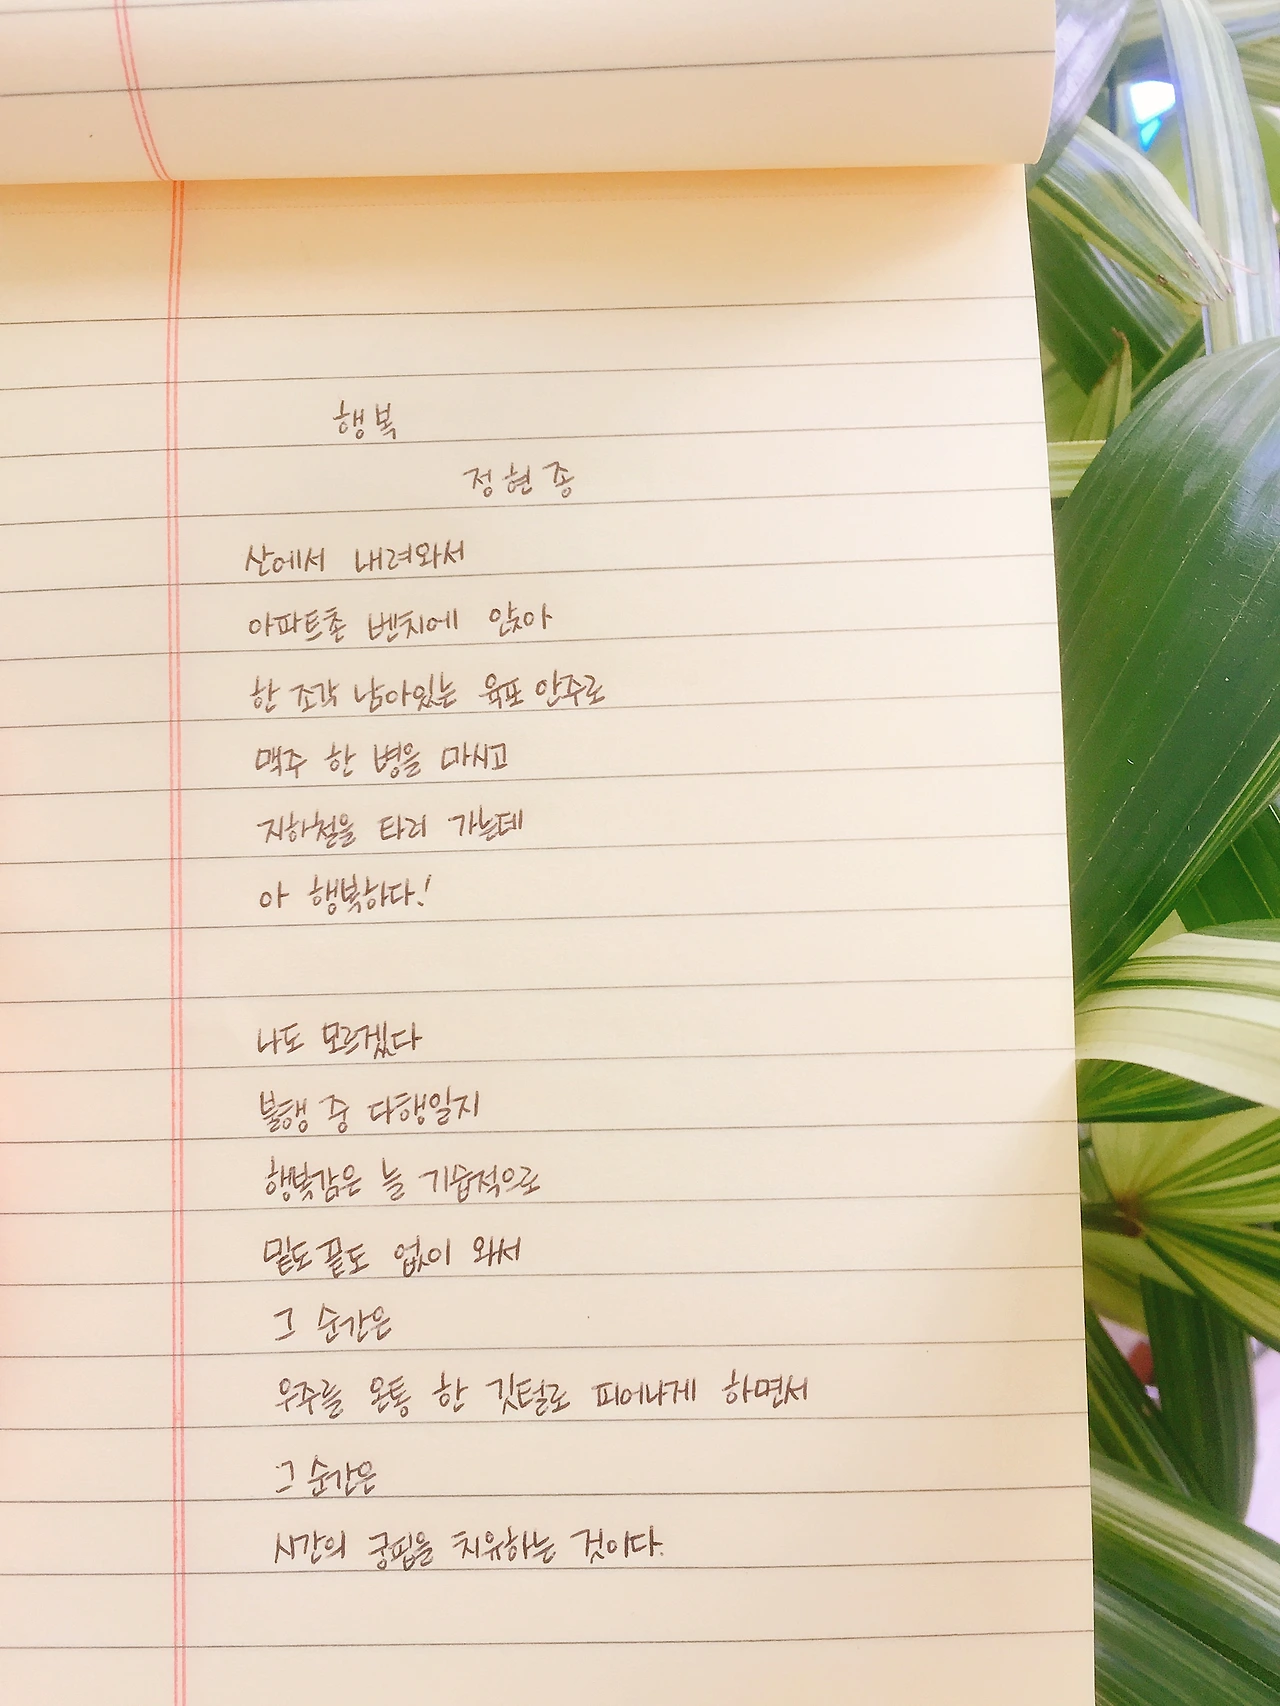 행복
정현종
산에서 내려와서
아파트촌 벤치에 앉아
한 조각 남아있는 육포 안주로
맥주 한 병을 마시고
지하철을 타러 가는데
아 행복하다!
나도 모르겠다
불행 중 다행일지
행복감은 늘 기습적으로
밑도 끝도 없이 와서
그 순간은
우주를 온통 한 깃털로 피어나게 하면서
그 순간은
시간의 궁핍을 치유하는 것이다.